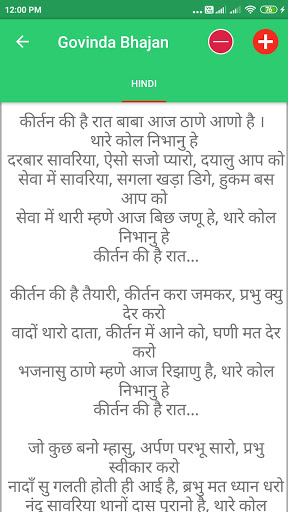 12:00 PM
76
Govinda Bhajan
HINDI
कीर्तन की है रात बाबा आज ठाणे आणो है ।
थारे कोल निभानु हे
दरबार सावरिया, ऐसो सजो प्यारो, दयालु आप को
सेवा में सावरिया, सगला खड़ा डिगे, हुकम बस
आप को
सेवा में थारी म्हणे आज बिछ जणू हे, थारे कोल
निभानु हे
कीर्तन की है रात...
कीर्तन की है तैयारी, कीर्तन करा जमकर, प्रभु क्यु
देर करो
वादों थारो दाता, कीर्तन में आने को, घणी मत देर
करो
भजनासु ठाणे म्हणे आज रिझाणु है, थारे कोल
निभानु हे
कीर्तन की है रात...
जो कुछ बनो म्हासु, अर्पण परभू सारो, प्रभु
स्वीकार करो
नादाँ सु गलती होती ही आई है, ब्रभु मत ध्यान धरो
नंदू सावरिया थानों दास पुरानो है, थारे कोल